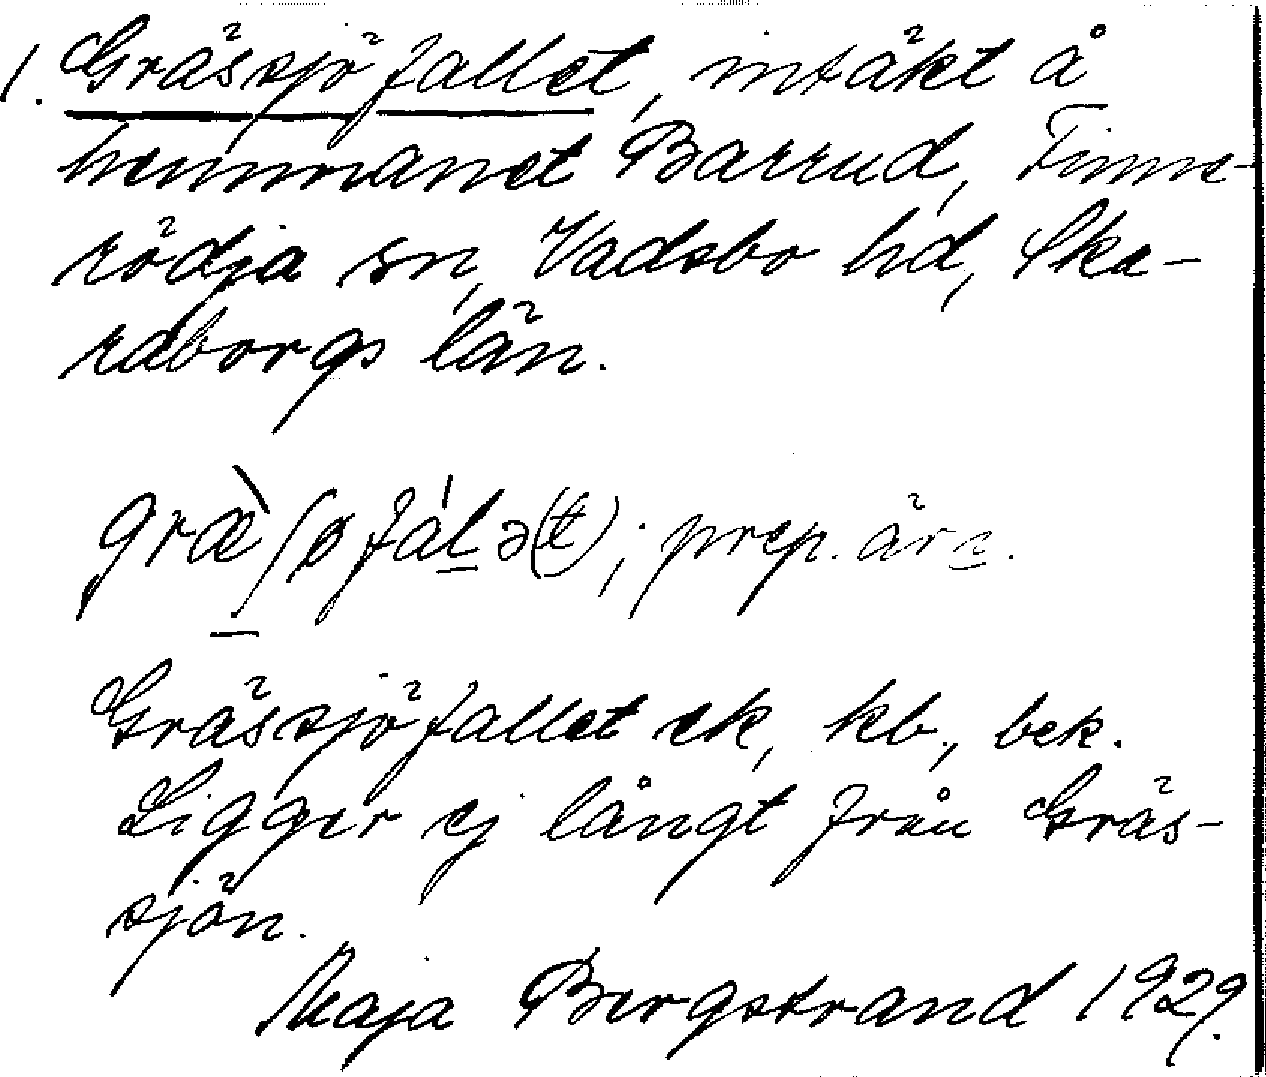 1. Grässjöfallet, intäkt å
hemmanet Barrud, Finne-
rödja sn, Vadsbo hd, Ska-
raborgs län.
græ̀ʃøfál̠ə(t̠); prep. är̠.
Grässjöfallet ek, kb., bek.
Ligger ej långt från Gräs-
sjön.
Maja Bergstrand 1929.